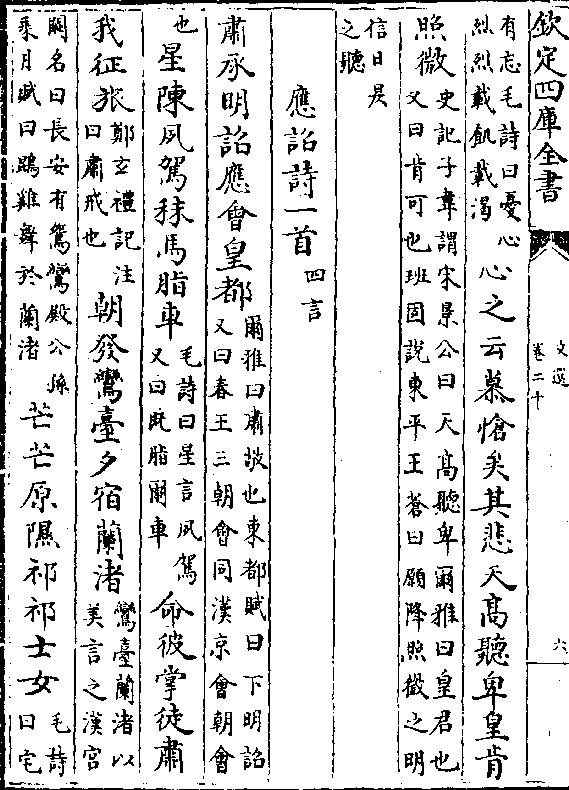 欽定四庫全書
文選
卷二十
六
有志毛詩曰憂心
烈烈載飢載渴
心之云慕愴矣其悲天高聽卑皇肯
照微
史記子韋謂宋景公曰天高聽卑爾雅曰皇君也
又曰肯可也班固說東平王蒼曰願降照微之明
信日昃
之聽
應詔詩一首
四言
肅承明詔應會皇都
爾雅曰肅敬也東都賦曰下明詔
又曰春王三朝會同漢京會朝會
也
星陳夙駕秣馬脂車
毛詩曰星言夙駕
又曰既脂爾車
命彼掌徒肅
我征旅
鄭玄禮記注
曰肅戒也
朝發鸞臺夕宿蘭渚
鸞臺蘭渚以
美言之漢宮
闕名曰長安有鴛鸞殿公孫
乘月賦曰鵾雞舞於蘭渚
芒芒原隰祁祁士女
毛詩
曰宅